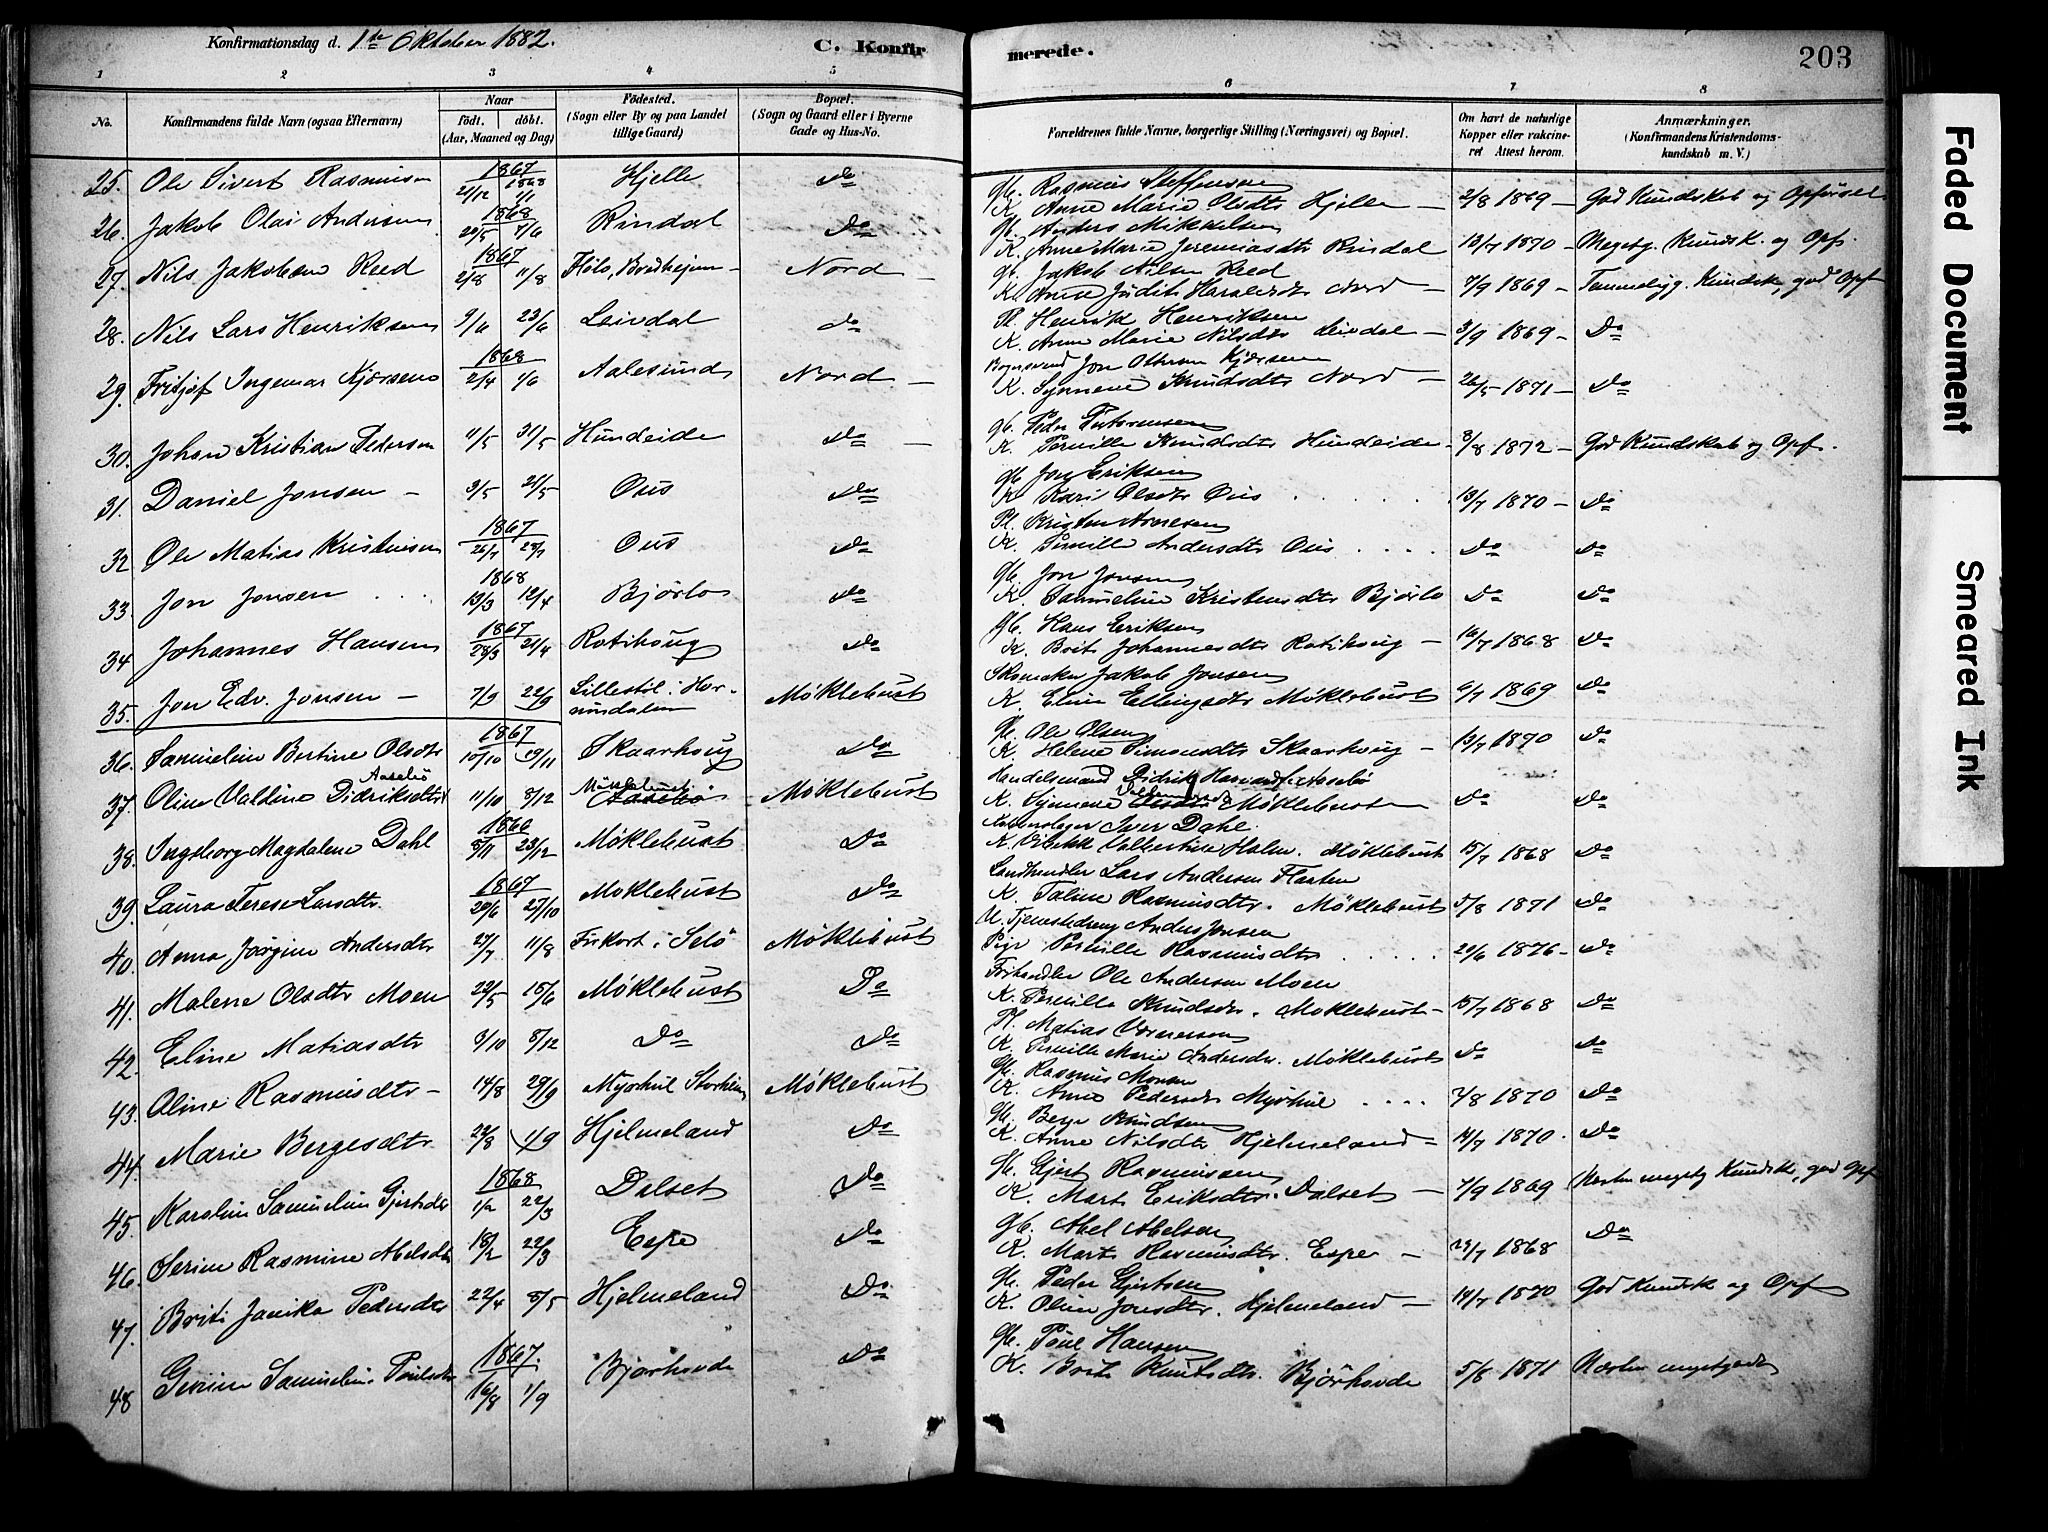 Konfirmationsdag d. 1ste Oktober 1882.
C. Konfirmerede.
203
1 2 3 4 5 6 7 8
No.
Konfirmandens fulde Navn (ogsaa Efternavn)
Naar
født. døbt.
(Aar, Maaned og Dag)
Fødested.
(Sogn eller By og paa Landet tillige Gaard)
Bopæl.
(Sogn og Gaard eller i Byerne Gade og Hus-No.
Forældrenes fulde Navne, borgerlige Stilling (Næringsvei) og Bopæl.
Om havt de naturlige Kopper eller vakcineret Attest herom.
Anmærkninger.
(Konfirmandens Kristendomskundskab m. V.)
25. Ole Sivert Rasmusen 1867 21/12 1868 1/1 Hjelle Do Gb. Rasmus Steffensen K. Anne Marie Olsdtr Hjelle — 2/8 1869 — God Kundskab og Opførsel
26. Jakob Olai Andersen 1868 20/5 7/6 Rindal Do Gb. Anders Mikkelsen K. Anne Marie Jeremiasdtr Rindal 13/7 1870 — Megetg. Kundsk. og Opf.
27. Nils Jakobsen Reed 1867 2/8 11/8 Flölo, Bredhejem — Nord — Gb. Jakob Nilsen Reed K. Anne Judit Haraldsdtr Nord — 7/9 1869 — Temmelig g. Kundsk., god Opf
28. Nils Lars Henriksen 9/6 23/6 Leivdal Do Pl. Henrik Henriksen K. Anne Marie Nilsdtr Leivdal — 3/9 1869 — Do
29. Fritjof Ingemar Kjørsens 1868 2/4 1/6 Aalesund Nord — Jon K. Synneve Knudsdtr Nord — 26/5 1871 — Do
30. Johan Kristian Pedersen 11/5 31/5 Hundeide Do — Gb. Peder K. Pernille Knudsdtr Hundeide — 8/8 1872 — God Kundskab og Opf.
31. Daniel Jonsen — 3/5 21/5 Ous Do Gb. Jon Eriksen K. Kari Olsdtr Ous 13/7 1870 — Do
32 Ole Matias Kristensen 1867 26/7 28/7 Ous Do Pl. Kristen Arnesen K. Pernille Andersdtr Ous Do Do
33. Jon Jonsen 1868 13/3 12/4 Bjørlo Do Gb. Jon Jonsen K. Samueline Kristensdtr Bjørlo Do Do
34 Johannes Hansen 1867 28/3 21/4 Rotihoug Do Gb. Hans Eriksen K. Brit Johannesdtr Rotihoug — 16/7 1868 Do
35. Jon Edv. Jonsen — 7/9 22/9 Lillestöl i Hornindalen Møklebust Skomaker Jakob Jonsen K. Eline Ellingsdtr Møklebust 6/7 1869 Do
36. Samueline Bertine Olsdtr 1867 10/10 19/11 Skaarhoug Do Gb. Ole Olsen K. Helene Simonsdtr Skaarhoug — 13/7 1870 Do
37. Oline Valdine Didriksdtr Aasebö 11/10 8/12 Møklebust Aasebö Møklebust Handelsmand Didrik Aasebö K. Synneve Møklebust — Do Do
38. Ingeborg Magdalene Dahl 1866 8/11 23/12 Møklebust Do Kobberslager Iver Dahl. K. Vibekke Valbertine Holm. Møklebust 15/7 1868 Do
39. Laura Terese Larsdtr. 1867 20/6 27/10 Moklebust Do Landhandler Lars Andersen Flaten K. Taline Rasmusdtr. Møklebust 5/8 1871 Do
40. Anna Jørgine Andersdtr 27/7 11/8 i Selö Møklebust U. Tjenestedreng Anders Jonsen Pige Pernille Rasmusdtr 20/6 1876 — Do
41. Malene Olsdtr Moen 22/5 15/6 Møklebust Do Ole Andersen Moen K. Pernille Knudsdr. Moklebust — 15/7 1868 Do
42. Eline Matiasdtr 9/10 8/12 Do Do Pl. Matias K. Pernille Marie Andersdr. Møklebust Do Do
43. Oline Rasmusdtr — 14/8 29/9 Myrhul Møklebust Gb. Rasmus Monsen K. Anne Pedersdtr Myrhul 2/8 1870 Do
44. Marie Bergesdtr 22/8 1/9 Hjelmeland Do Gb. Berge Knudsen K. Anne Nilsdtr Hjelmeland — 14/7 1870. Do
45. Karoline Samueline Gjertsdtr 1868 1/2 22/3 Dalset Do Gb. Gjert Rasmussen K. Marte Eriksdtr. Dalset — 7/9 1869 Næsten megetg Kundsk., god Opf
46. Serine Rasmine Abelsdtr 18/2 22/3 Espe Do Gb. Abel Abelsen K. Marte Rasmusdtr. Espe — 23/7 1868 Do
47. Brite Janika Pedersdtr 22/4 8/5 Hjelmeland Do Gb. Peder Gjertsen K. Oline Jonsdtr. Hjelmeland — 14/7 1870 God Kundsk og Opf
48 Samueline Poulsdtr 1867. 16/8 1/9 Bjørhovde Do Gb. Poul Hansen K. Brite Knutsdtr. Bjørhovde 5/8 1871 Næsten megetgod
Faded Document
Smeared Ink